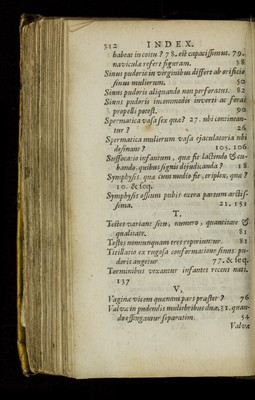 312 INDEX.
habeat in coitu? 78. est capacissimus. 79.
navicula refert figuram. 58
Sinus pudoris in virginibus differt ab orificio
sinus mulierum. 50
Sinus pudoris aliquando non perforatus. 82
Sinus pudoris incommodis inverti ac foras
propelli potest. 90
Spermatica vasa sex qua? 27. ubi contineantur
? 26
Spermatica mulierum vasa ejaculatoria ubi
desinant? 105. 106
Suffocatio infantum, qua fit lactando & cubando
. quibus signis dijudicanda? 18
Symphysis. qua & quomodo fit, triplex, qua?
10. & seq.
Symphysis ossium pubis extra partum arctissima
. 21. 151
T.
Testes variant situ, numero, quantitate &
qualitate. 81
Testes nonnunquam tres reperiuntur. 81
Titillatio ex rugosa conformatione sinus pudoris
augetur 77. & seq.
Torminibus vexantur infantes recens nati.
137
V.
Vagina vicem quænam pars præstet? 76
Valvæ in pudendis muliebribus duæ, 52. quando
effingantur separatim. 54
Valvæ